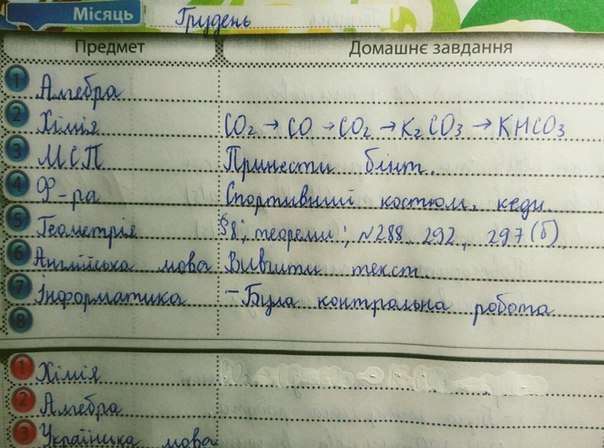 Місяць Грудень
Предмет Домашнє завдання
1 Алгебра
2 Хімія CO2 → CO → CO2 → K2CO3 → KHCO3
3 МСП Принести бінт.
4 Ф-ра Спортивний костюм, кеди.
5 Геометрія §8; теореми; №288, 292, 297(б)
6 Англійська мова Вивчити текст
7 Інформатика – Була контрольна робота
8
1 Хімія
2 Алгебра
3 Українська мова